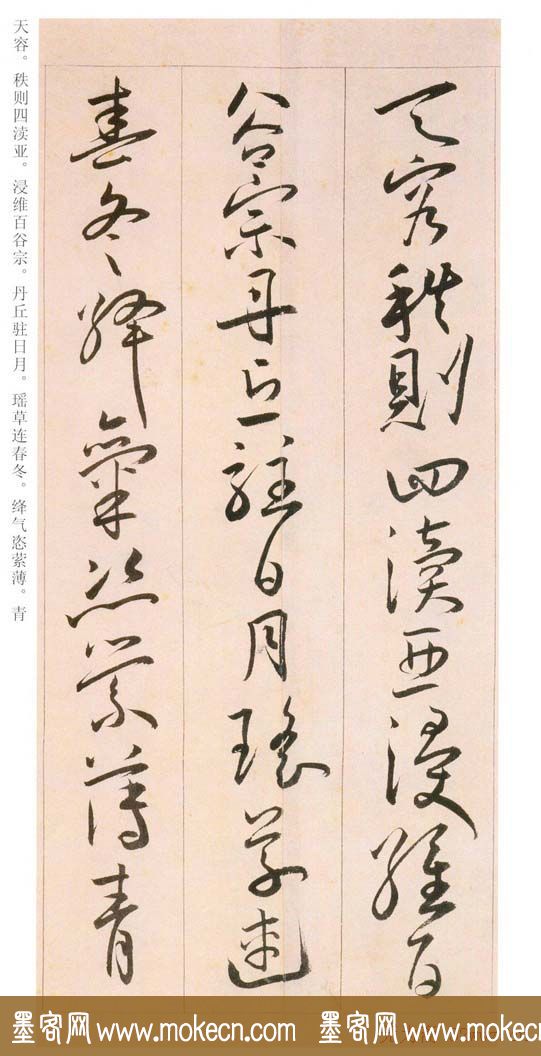 天容秩則四瀆亞浸維百
谷宗丹丘駐日月瑤草連
春冬絳氣恣縈薄青
天容。秩则四渎亚。浸维百谷宗。丹丘驻日月。瑶草连春冬。绛气恣萦薄。青
墨客网 www.mokecn.com 墨客网 www.mokecn.com